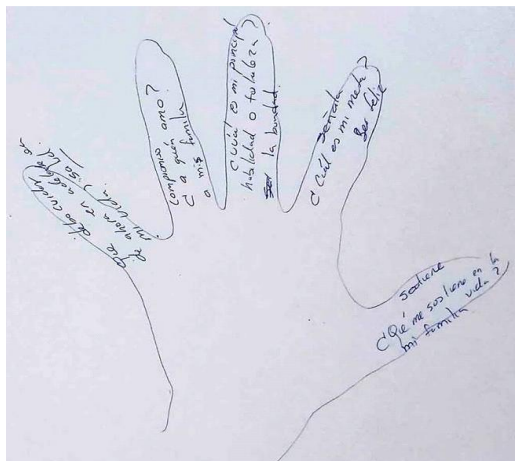 que debo cuidar
de ahora en adelante en
mi vida? salud.
Compromiso
¿a quién amo?
a mi familia
¿Cuál es mi principal
habilidad o fortaleza?
ser la bondad.
señala
¿Cuál es mi meta?
ser feliz
sostiene
¿Qué me sostiene en la
mi familia vida?